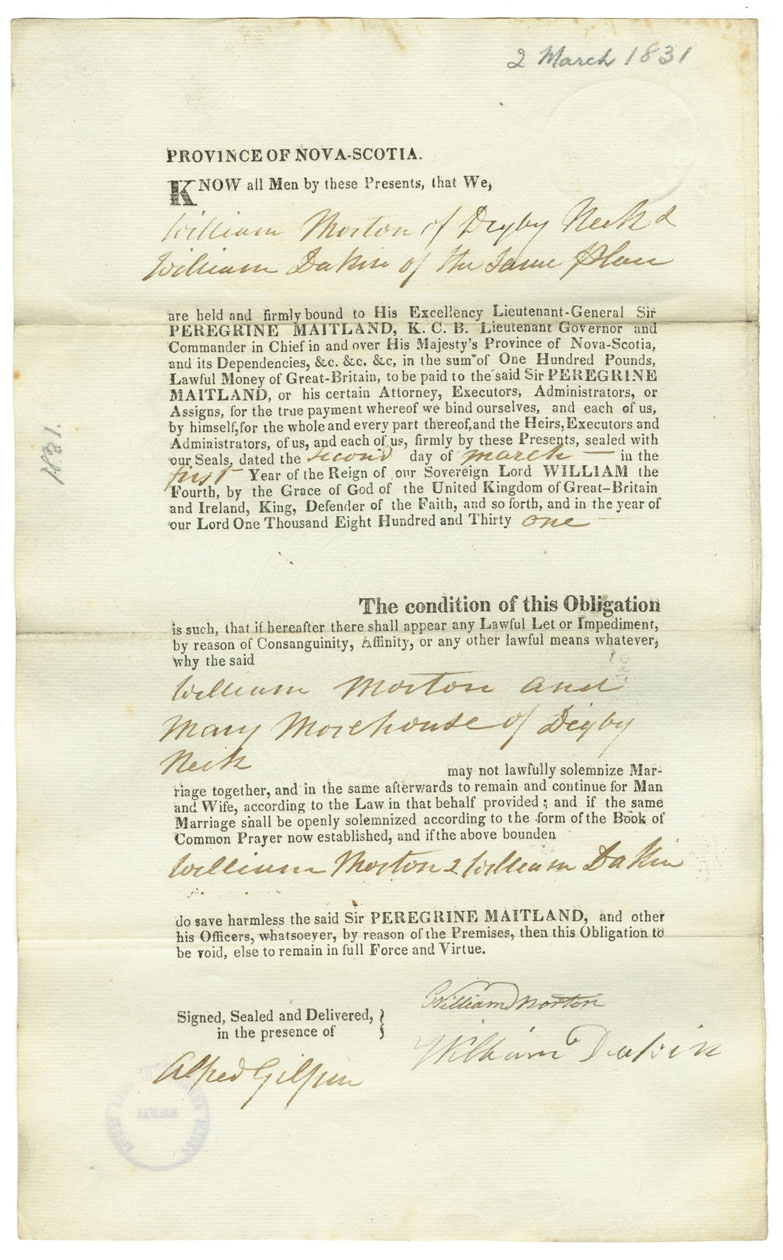 2 March 1831
PROVINCE OF NOVA-SCOTIA.
KNOW all Men by these Presents, that We,
William Morton of Digby Neck &
William Dakin of the same place
are held and firmly bound to His Excellency Lieutenant-General Sir
PEREGRINE MAITLAND, K. C. B. Lieutenant Governor and
Commander in Chief in and over His Majesty's Province of Nova-Scotia,
and its Dependencies, &c. &c. &c, in the sum of One Hundred Pounds,
Lawful Money of Great-Britain, to be paid to the said Sir PEREGRINE
MAITLAND, or his certain Attorney, Executors, Administrators, or
Assigns, for the true payment whereof we bind ourselves, and each of us,
by himself, for the whole and every part thereof, and the Heirs, Executors and
Administrators, of us, and each of us, firmly by these Presents, sealed with
our Seals, dated the second day of march — in the
first Year of the Reign of our Sovereign Lord WILLIAM the
Fourth, by the Grace of God of the United Kingdom of Great-Britain
and Ireland, King, Defender of the Faith, and so forth, and in the year of
our Lord One Thousand Eight Hundred and Thirty one —
The condition of this Obligation
is such, that if hereafter there shall appear any Lawful Let or Impediment,
by reason of Consanguinity, Affinity, or any other lawful means whatever,
why the said
William Morton and
Mary Morehouse of Digby
Neck
may not lawfully solemnize Mar-
riage together, and in the same afterwards to remain and continue for Man
and Wife, according to the Law in that behalf provided; and if the same
Marriage shall be openly solemnized according to the form of the Book of
Common Prayer now established, and if the above bounden
William Morton & William Dakin
do save harmless the said Sir PEREGRINE MAITLAND, and other
his Officers, whatsoever, by reason of the Premises, then this Obligation to
be void, else to remain in full Force and Virtue.
William Morton
Signed, Sealed and Delivered, }
in the presence of
William Dakin
Alfred Gilpin